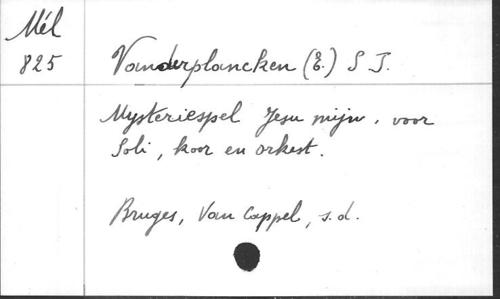 Mél
825
Vanderplancken (E.) S J.
Mysteriespel Jesu mijn, voor
Soli, koor en orkest.
Bruges, Van Cappel, s.d.